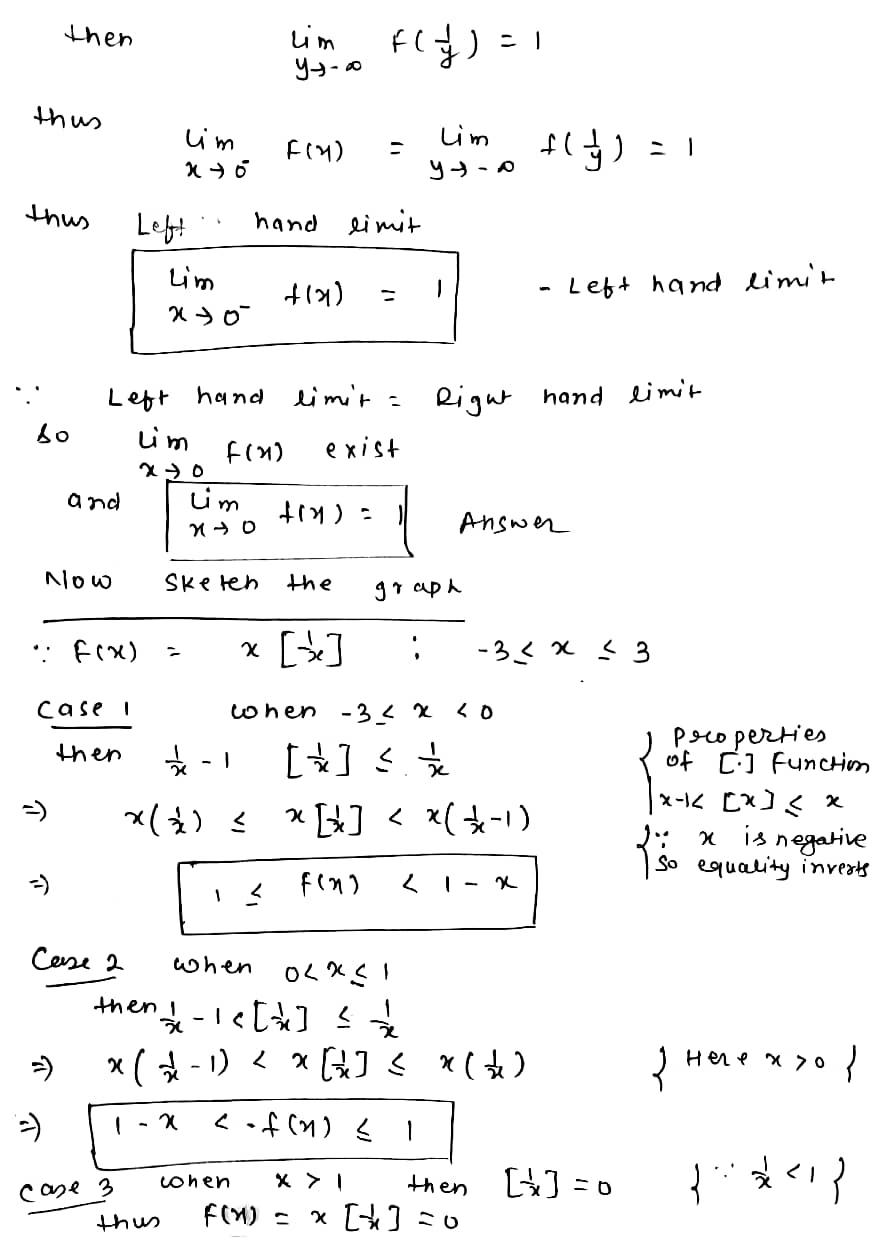 then lim y→-∞ f(1/y) = 1
thus lim x→0⁻ f(x) = lim y→-∞ f(1/y) = 1
thus Left hand limit
lim x→0⁻ f(x) = 1 - Left hand limit
∵ Left hand limit = Right hand limit
so lim x→0 f(x) exist
and lim x→0 f(x) = 1 Answer
Now Sketch the graph
∵ f(x) = x [1/x] : -3 ≤ x ≤ 3
Case 1 when -3 ≤ x < 0
then 1/x - 1 [1/x] ≤ 1/x { Properties of [·] Function
⇒ x(1/x) ≤ x[1/x] < x(1/x - 1) x-1< [x] ≤ x
{∵ x is negative
so equality inverts
⇒ 1 ≤ f(x) < 1 - x
Case 2 when 0<x≤1
then 1/x - 1 < [1/x] ≤ 1/x
⇒ x(1/x - 1) < x[1/x] ≤ x(1/x) } Here x>0 {
⇒ 1 - x < f(x) ≤ 1
Case 3 when x > 1 then [1/x] = 0 {∵ 1/x < 1}
thus f(x) = x [1/x] = 0